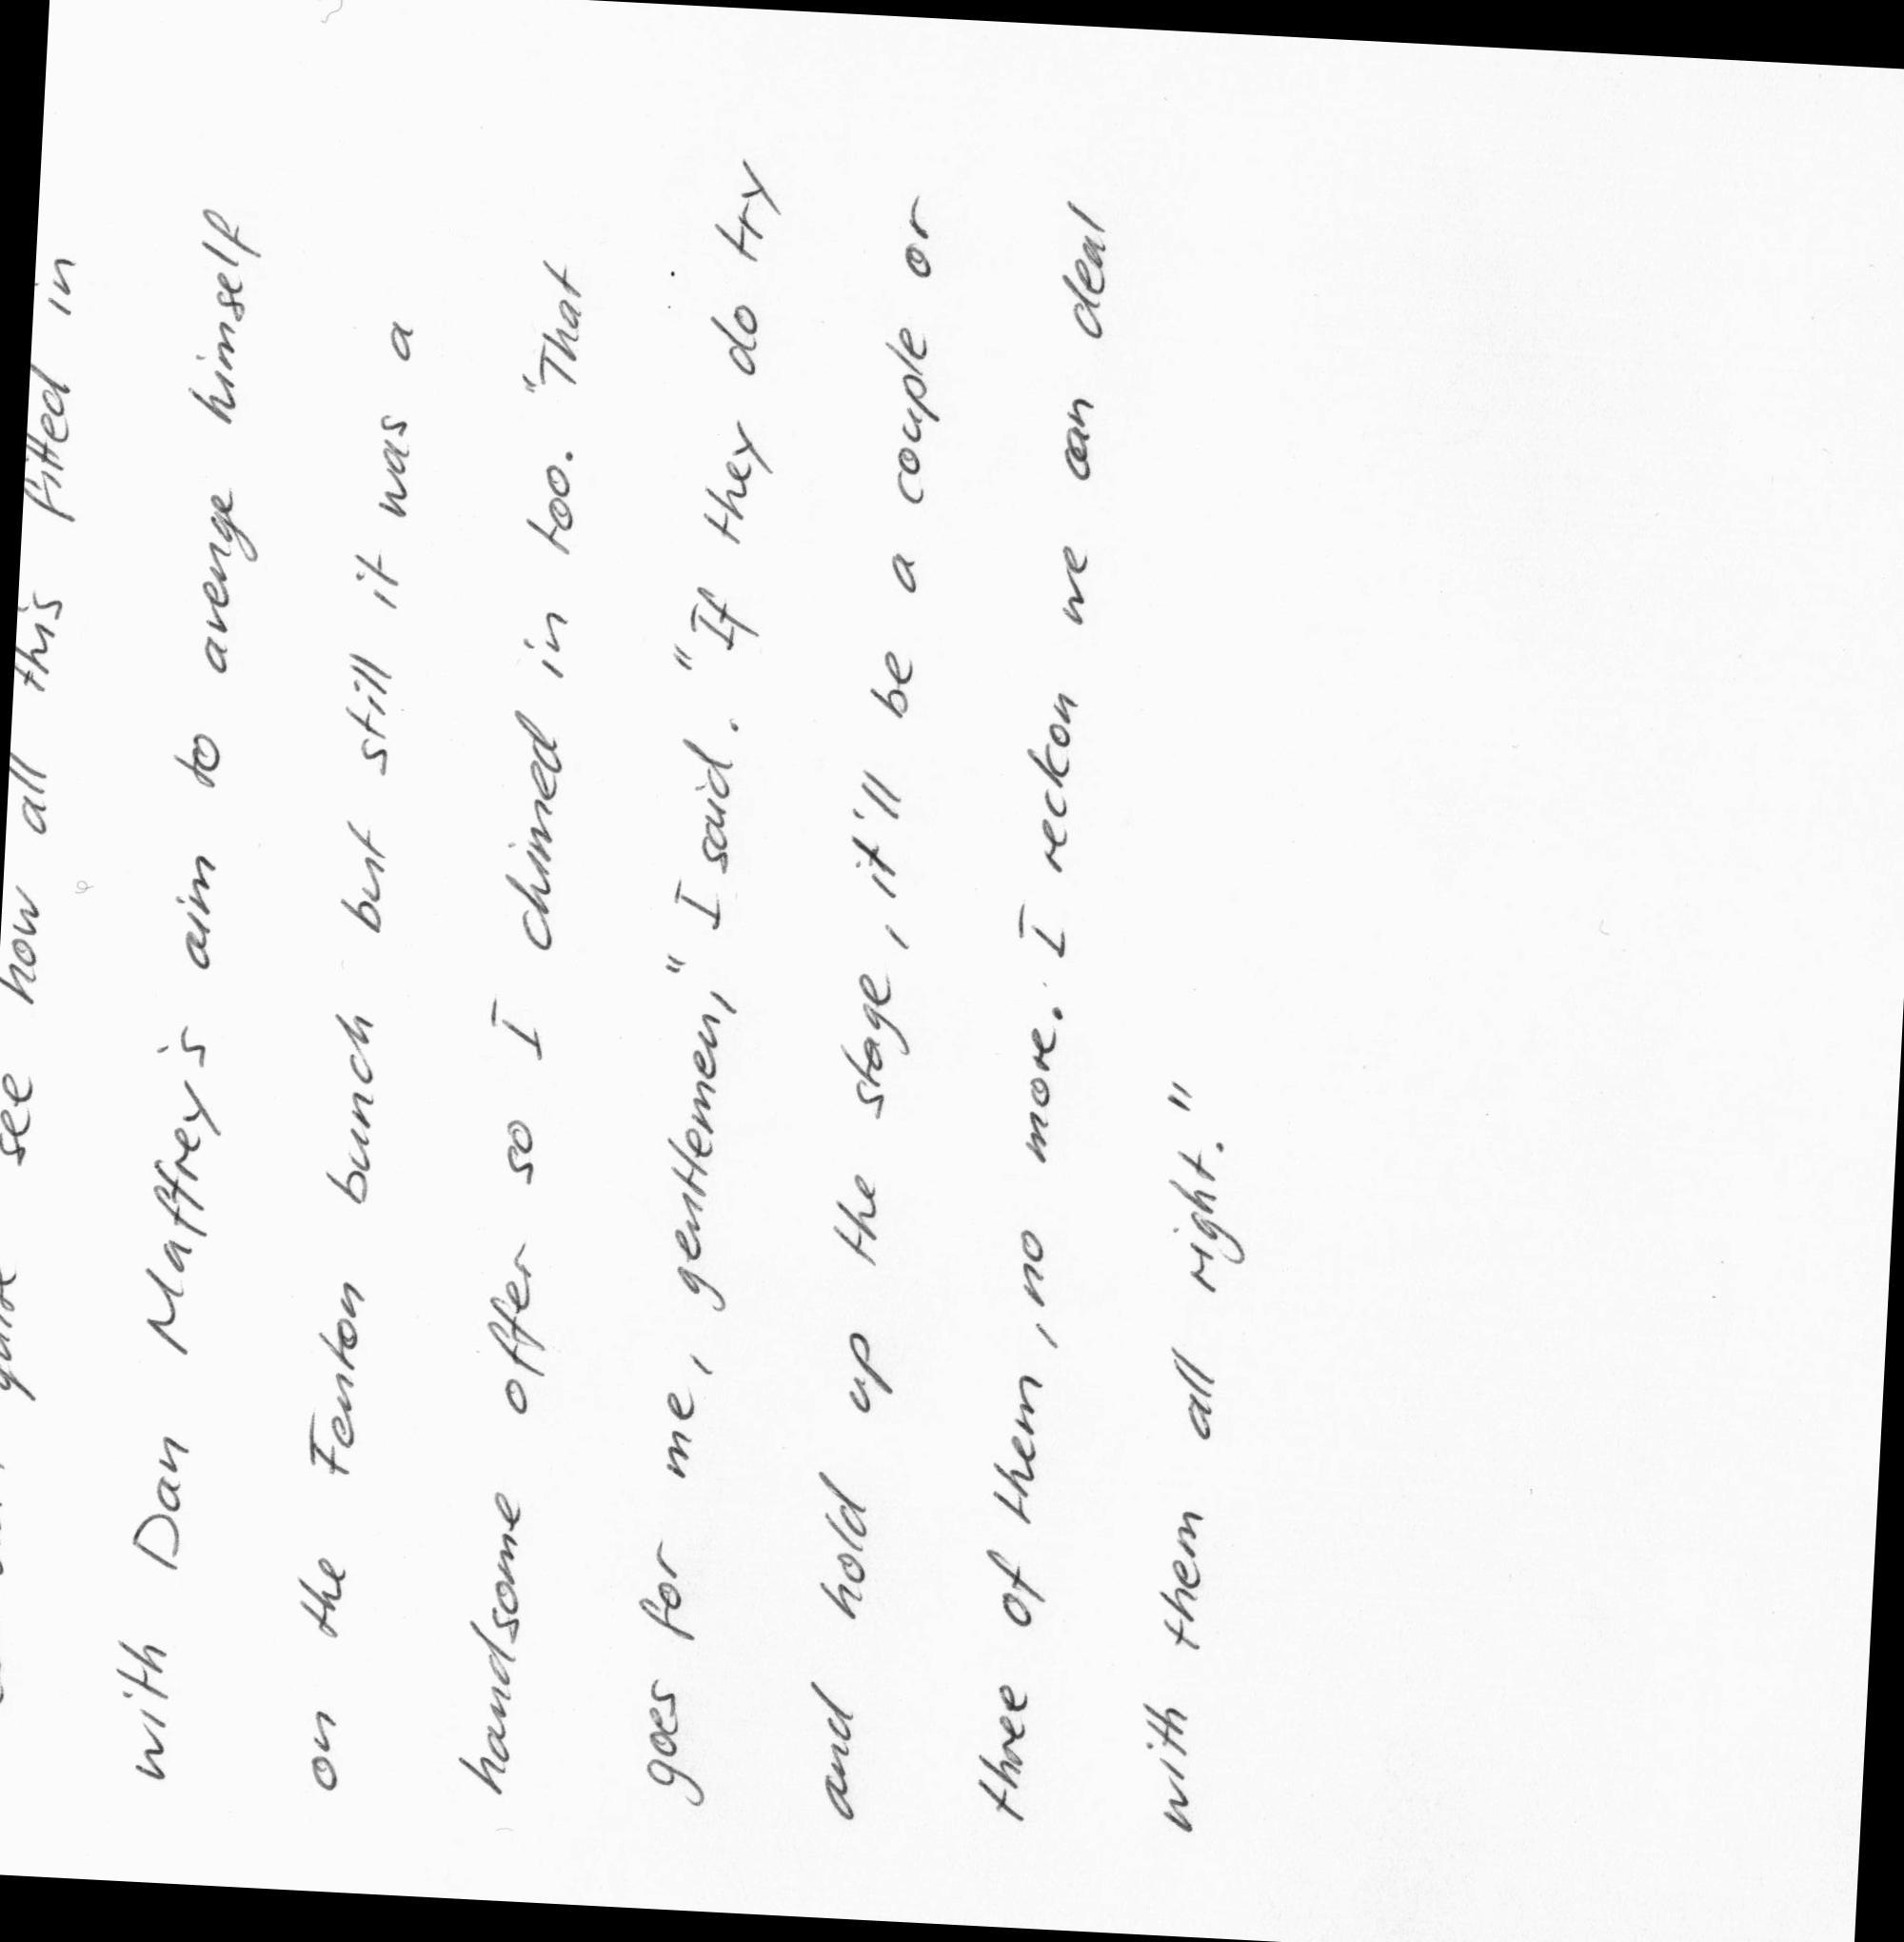 see how all this fitted in
with Dan Maffrey's aim to avenge himself
on the Fenton bunch but still it was a
handsome offer so I chimed in too. "That
goes for me, gentlemen," I said. "If they do try
and hold up the stage, it'll be a couple or
three of them, no more. I reckon we can deal
with them all right."